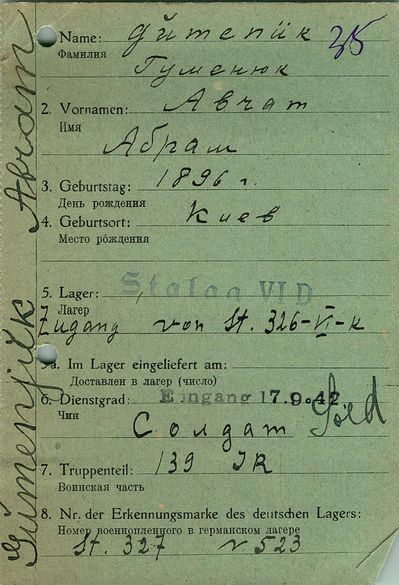 Name: Gümeniük 35
Фамилия Гуменюк
2. Vornamen: Avram
Имя
Абрам
3. Geburtstag: 1896 г.
День рождения
4. Geburtsort: Киев
Место рождения
5. Lager: Stalag VI D
Лагер
Zugang von St. 326-VI-K
5a. Im Lager eingeliefert am:
Доставлен в лагер (число)
6. Dienstgrad: Eingang 17.9.42
Чин Солдат Sold
7. Truppenteil: 139 IR
Воинская часть
8. Nr. der Erkennungsmarke des deutschen Lagers:
Номер военнопленного в германском лагере
St. 327 N 523
Gümenjük Abram